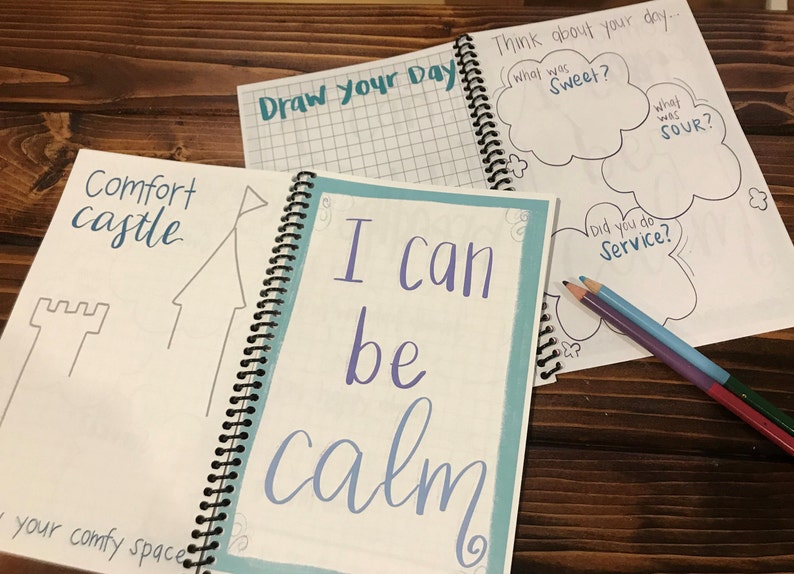 Draw Your Day
Think about your day...
What was
Sweet?
What
was
SOUR?
Did you do
Service?
Comfort
castle
your comfy space
I can
be
calm